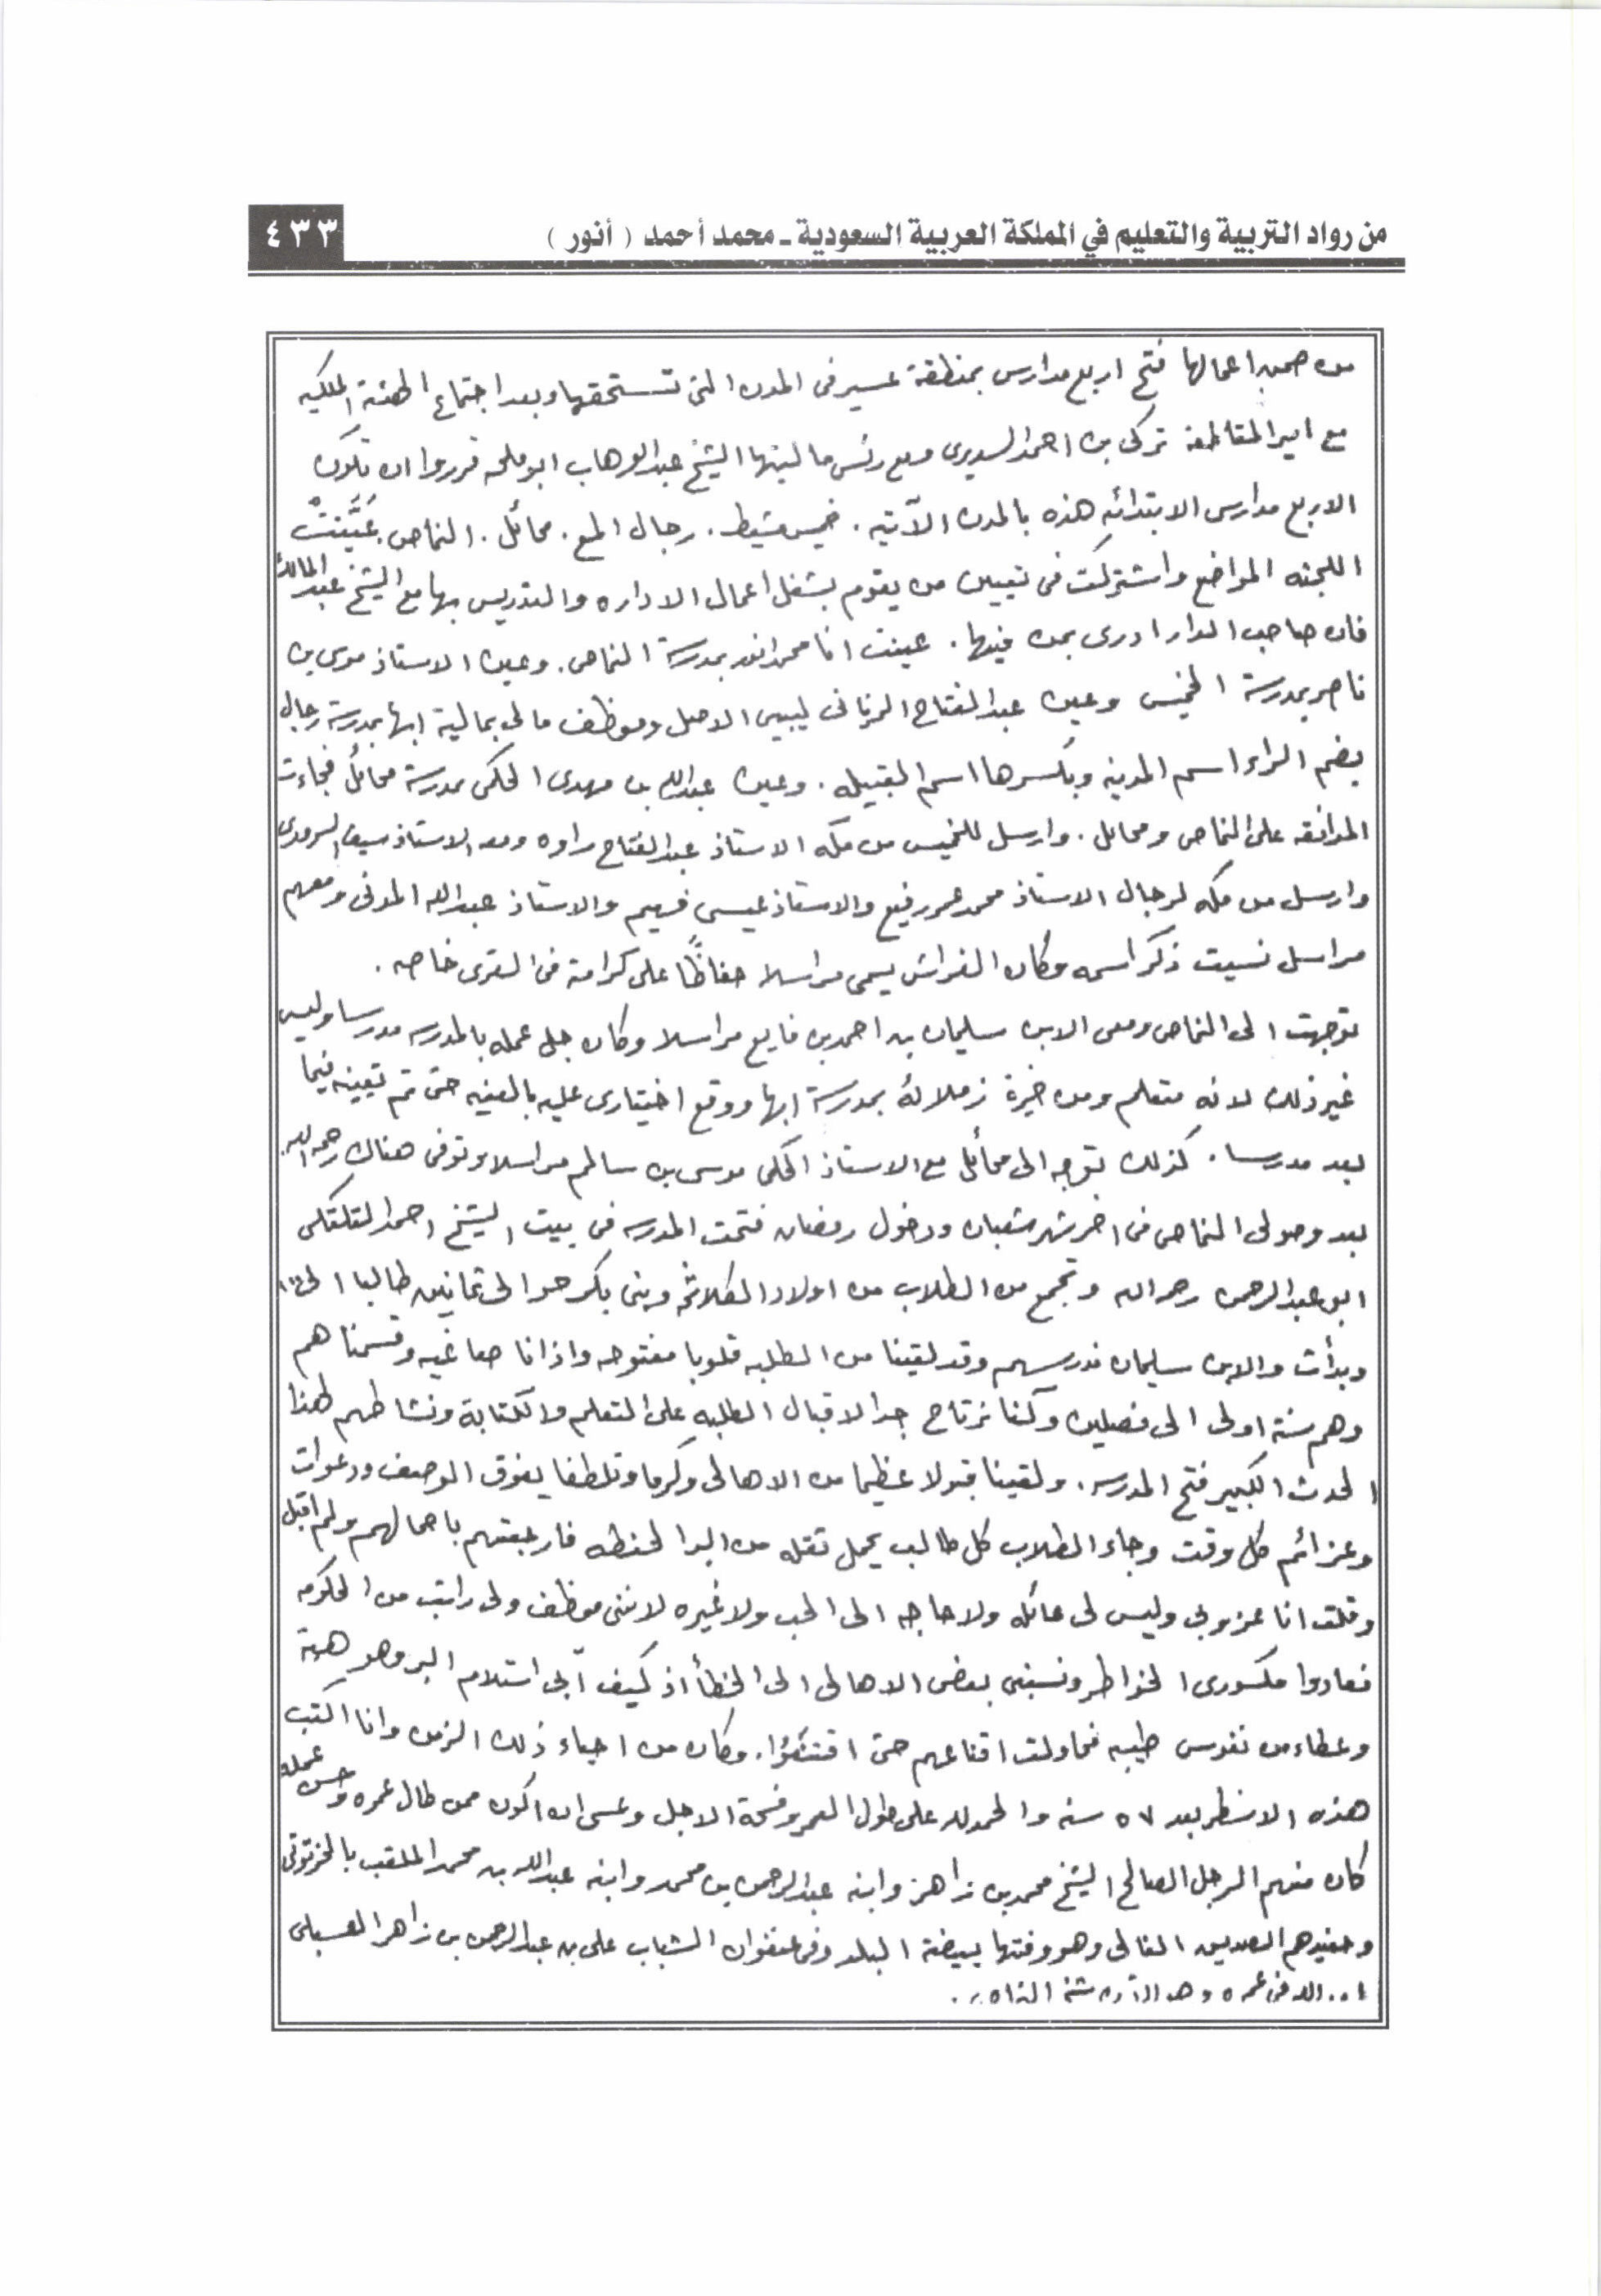 من رواد التربية والتعليم في المملكة العربية السعودية ـ محمد أحمد ( أنور )
٤٣٣
من ضمن اعمالها فتح اربع مدارس بمنطقة عسير فى المدن التى تستحقها وبعد اجتماع الهيئة الملكيه
مع امير المقاطعة تركى بن احمد السديرى ومع رئيس ماليتها الشيخ عبدالوهاب ابو ملحه قرروا ان تكون
الاربع مدارس الابتدائيه هذه بالمدن الآتيه . خميس مشيط . رجال المع . محائل . النماص . عَيَّنتْ
اللجنه المواضع واشتركت فى تعيين من يقوم بشغل اعمال الاداره والتدريس بها مع الشيخ عبدالمالك
فان صاحب الدار ادرى بمن فيها . عينت انا محمد انور بمدرسة النماص . وعين الاستاذ موسى بن
ناصر بمدرسة الخميس وعين عبدالفتاح الزنانى ليبى الاصل وموظف مالى بمالية ابها بمدرسة رجال
بضم الراء اسم المدينه وبكسرها اسم القبيله . وعين عبدالله بن مهدى الحكمى بمدرسة محائل فجاءت
الموافقه على النماص ومحائل . وارسل للخميس من مكه الاستاذ عبدالفتاح راوه ومعه الاستاذ سيف
وارسل من مكه لرجال الاستاذ محمد عمر رفيع والاستاذ عيسى فهيم والاستاذ عبدالله المدنى ومعهم
مراسل نسيت ذكر اسمه وكان الفراش يسمى مراسلا حفاظًا على كرامة فى القرى خاصه .
توجهت الى النماص ومعى الابن سليمان بن احمد بن فايع مراسلا وكان جل عمله بالمدرسه مدرسا وليس
غير ذلك لانه متعلم ومن خيرة زملائه بمدرسة ابها ووقع اختيارى عليه بالعينه حتى تم تعيينه فيما
بعد مدرسا . كذلك توجه الى محائل مع الاستاذ الحكمى موسى بن سالم مراسلا وتوفى هناك رحمه الله
بعد وصولى النماص فى اخر شهر شعبان ودخول رمضان فتحت المدرسه فى بيت الشيخ احمد
ابو عبدالرحمن رحمه الله وتجمع من الطلاب من اولاد الكلاثمه وبنى بكر حوالى ثمانين طالبا الى
وبدأت والابن سليمان ندرسهم وقد لقينا من الطلبه قلوبا مفتوحه واذانا صاغيه وقسمناهم
وهم سنة اولى الى فصلين وكنا نرتاح جدا لاقبال الطلبه على التعلم والكتابة ونشاطهم لهذا
الحدث الكبير فتح المدرسه . ولقينا قبولا عظيما من الاهالى وكرما وتلطفا يفوق الوصف ودعوات
وعزائم كل وقت وجاء الطلاب كل طالب يحمل ثقله من البر الحنطه فارجعتهم باحمالهم ولم اقبل
وقلت انا عزوبى وليس لى عائله ولا حاجه الى الحب ولا غيره لاننى موظف ولى راتب من الحكومه
فعادوا مكسورى الخواطر ونسبنى بعض الاهالى الى الخطأ اذ كيف آبى استلام البر وهو هبة
وعطاء من نفوس طيبه فحاولت اقناعهم حتى اقتنعوا . وكان من احياء ذلك الزمن وانا اكتب
هذه الاسطر بعد ٥٧ سنه والحمدلله على طول العمر وفسحة الاجل وعسى ان اكون ممن طال عمره وحسن عمله
كان منهم الرجل الصالح الشيخ محمد بن زاهر وابنه عبدالرحمن بن محمد وابنه عبدالله بن محمد الملقب
وحفيدهم الصديق الغالى وهو وقتها بيضة البلد وفى عنفوان الشباب على بن عبدالرحمن بن زاهر العسبلى
الله فى عمره وهو الآن شيخ